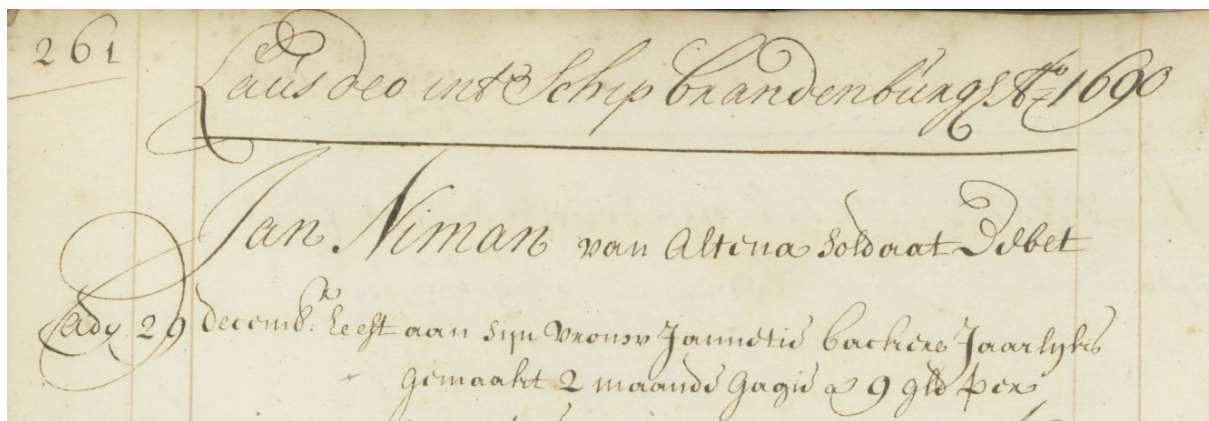 261
Laus deo int Schip brandenburg Ao 1690
Jan Niman van Altena Soldaat Debet
Ady 29 decembr: heeft aan syn vrouw Jannetie backers Jaarlyks
gemaakt 2 maande gagie a 9 gld per